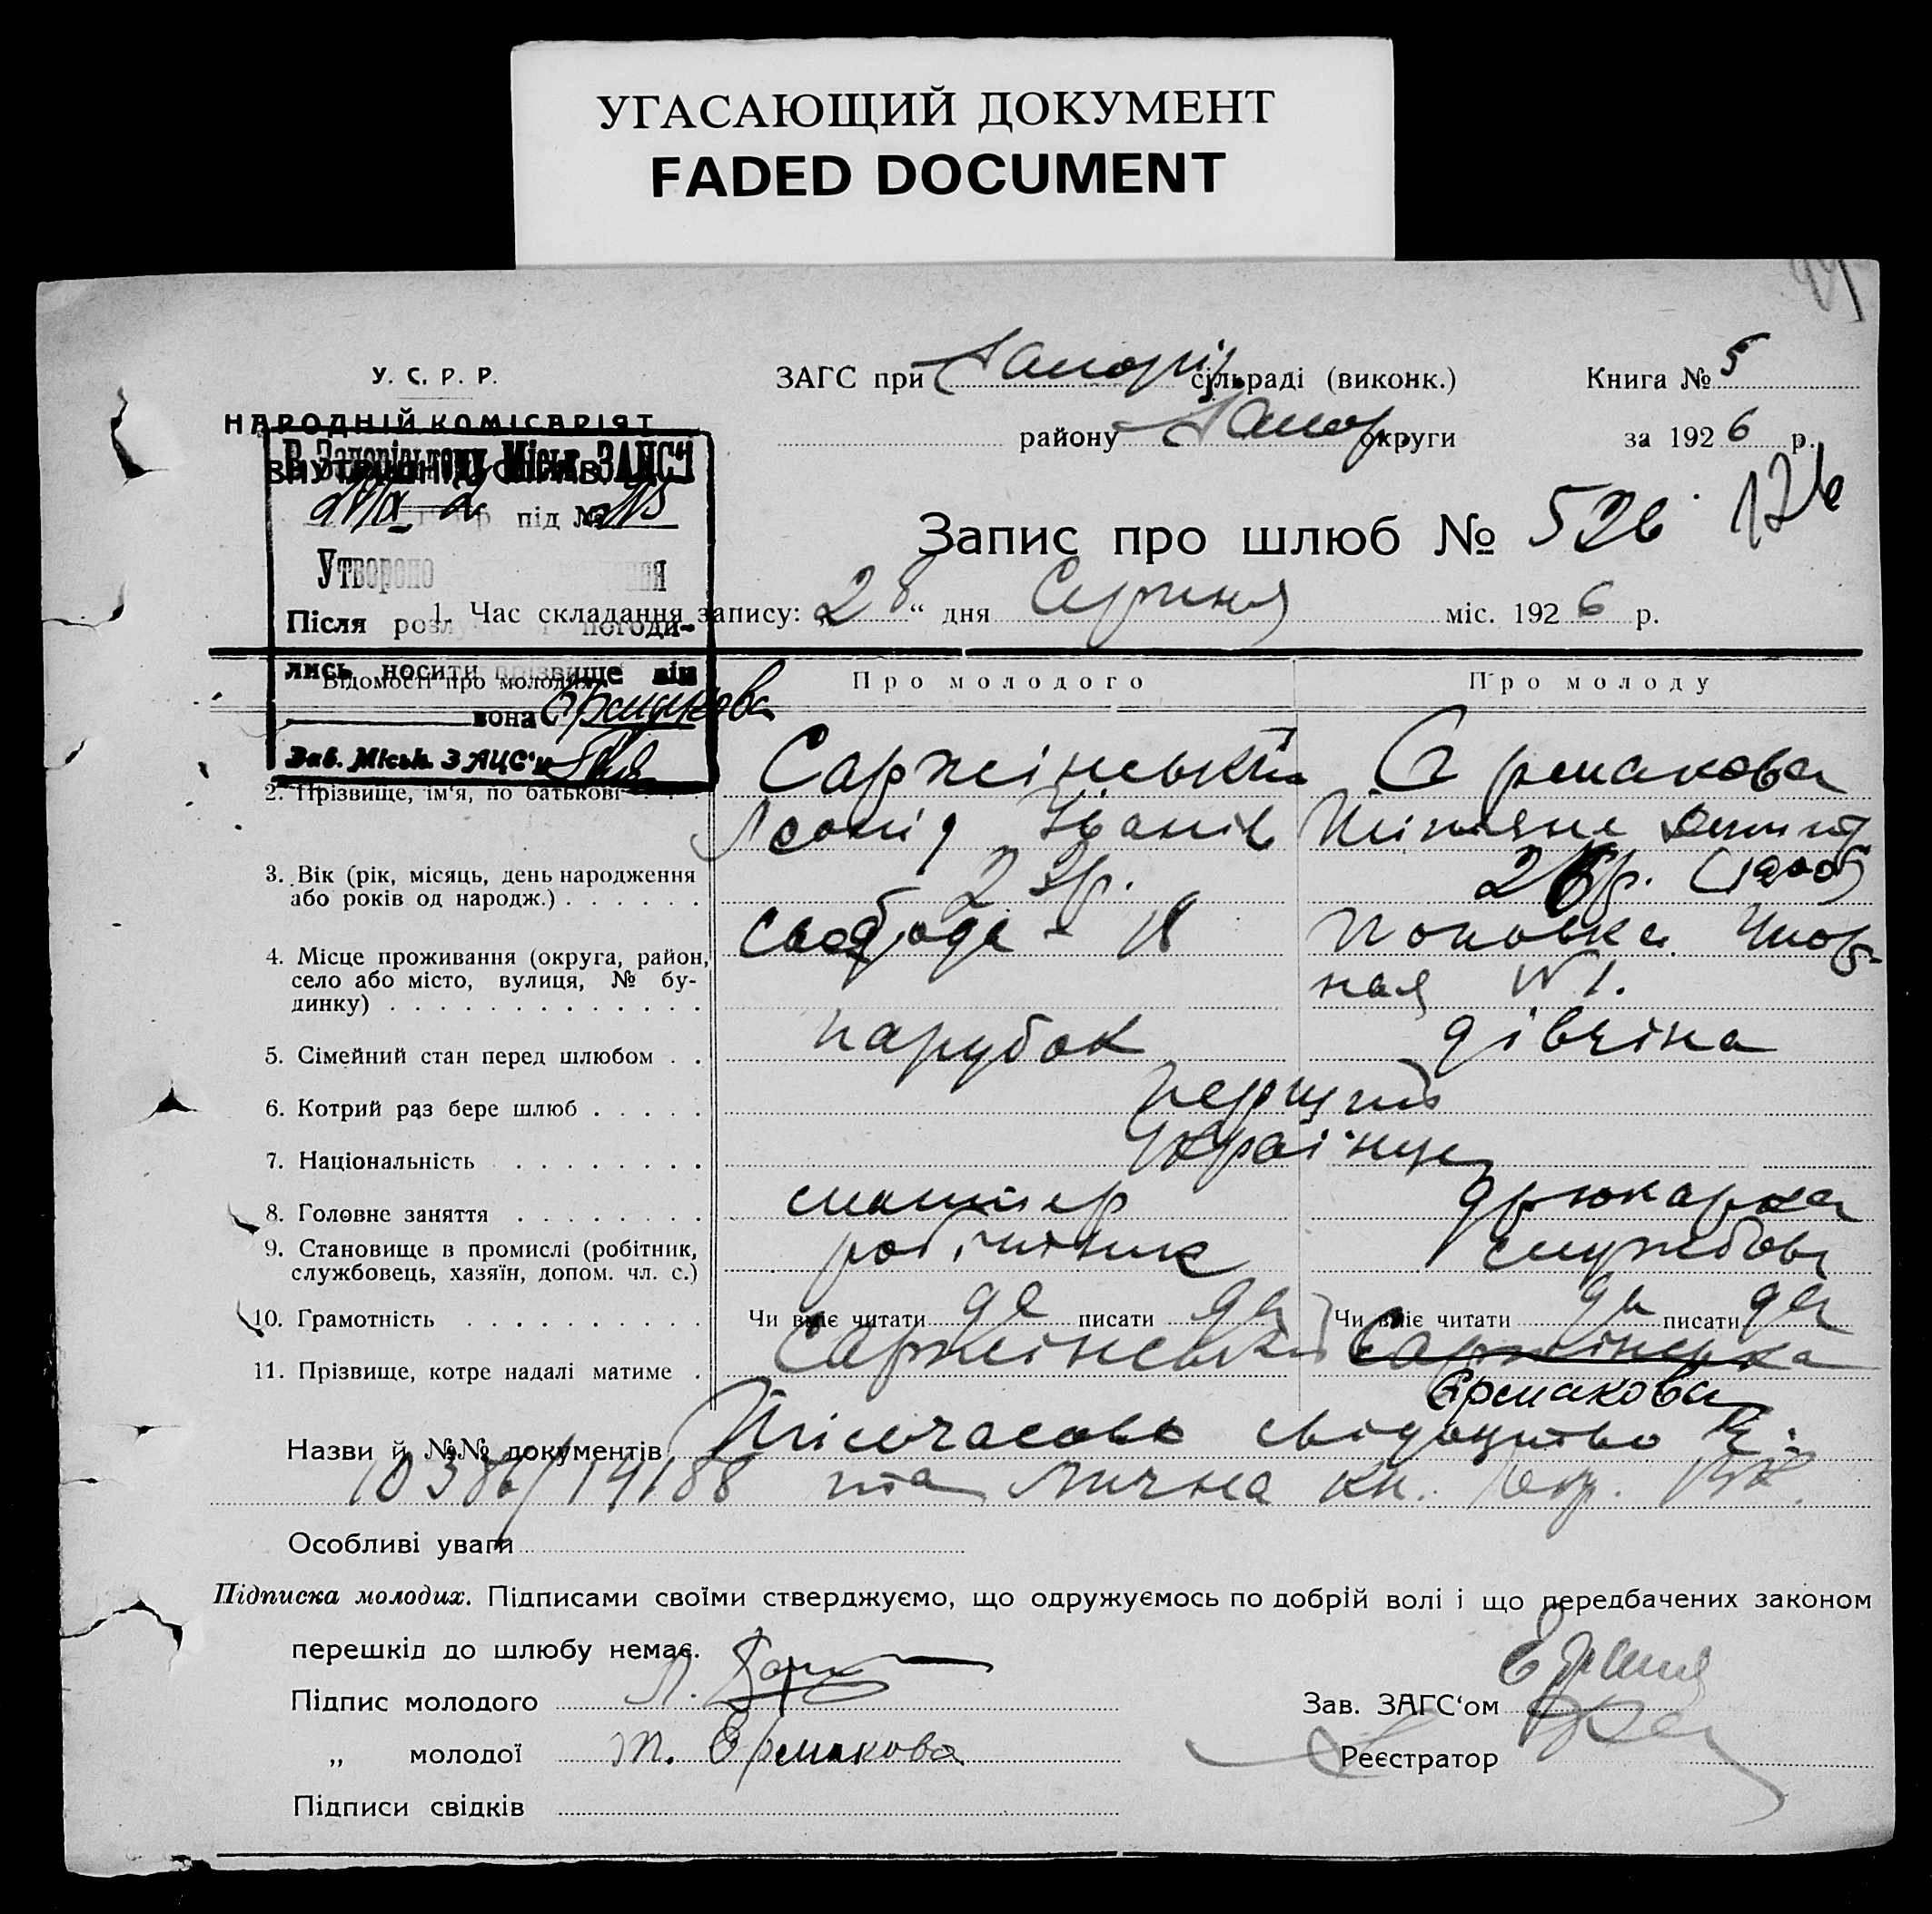 УГАСАЮЩИЙ ДОКУМЕНТ
FADED DOCUMENT
У. С. Р. Р.
НАРОДНІЙ КОМІСАРІЯТ
ВНУТРІШНІХ СПРАВ
В Запорізькому Міськ. ЗАЦС'і
під №
Утворено
Після розлу погоди-
лись носити прізвище він
вона Єрмакова
Зав. Міськ. ЗАЦС'у
ЗАГС при Запоріз. сільраді (виконк.) Книга № 5
району Запор округи за 1926 р.
Запис про шлюб № 526 126
1. Час складання запису: „28“ дня Серпня міс. 1926 р.
Відомості про молодих Про молодого Про молоду
2. Прізвище, ім'я, по батькові Саржінський Єрмакова
Леонід Іванів Тітяна Дмит
3. Вік (рік, місяць, день народження
або років од народж.) 26р. (1900)
4. Місце проживання (округа, район,
село або місто, вулиця, № бу-
динку) Слобода - 18 Поповка
ная № 1.
5. Сімейний стан перед шлюбом парубок дівчіна
6. Котрий раз бере шлюб перший
7. Національність Українці
8. Головне заняття друкарка
9. Становище в промислі (робітник,
службовець, хазяїн, допом. чл. с.) робітник службов
10. Грамотність Чи вміє читати да писати да Чи вміє читати да писати да
11. Прізвище, котре надалі матиме Саржінський Саржінська
Єрмакова
Назви й №№ документів Тісчасове свідоцтво
10386/14188 та Лична кн.
Особливі уваги
Підписка молодих. Підписами своїми стверджуємо, що одружуємось по добрій волі і що передбачених законом
перешкід до шлюбу немає.
Підпис молодого Л.
Зав. ЗАГС'ом
„ молодої Т. Ермакова
Реєстратор
Підписи свідків